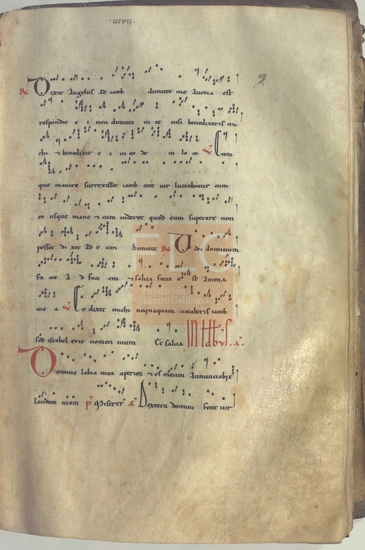 ·xxvii·
℟ Dixit Angelus ad iacob dimitte me Aurora est
respondit e i non dimittam te nisi benedixeris mi
chi ⁊ benedixit e i in eo de in lo co ℣ Cum
que mature surrexisset iacob ecce vir luctabatur cum
eo usque mane ⁊ cum videret quod eum superare non
posset dixit ad e um Dimitte ℟ Vidi dominum
fa cie A d faci em ⁊ salva facta est Anima
me a ℣ Et dixit michi nequaquam vocaberis iacob
sed israhel erit nomen tuum Et salva
Domine labia mea aperies ⁊ os meum Annunciabit
laudem tuam p̄ Miserere a̅ Dextera domini fecit vir
FLG
Fundación
Lázaro Galdiano